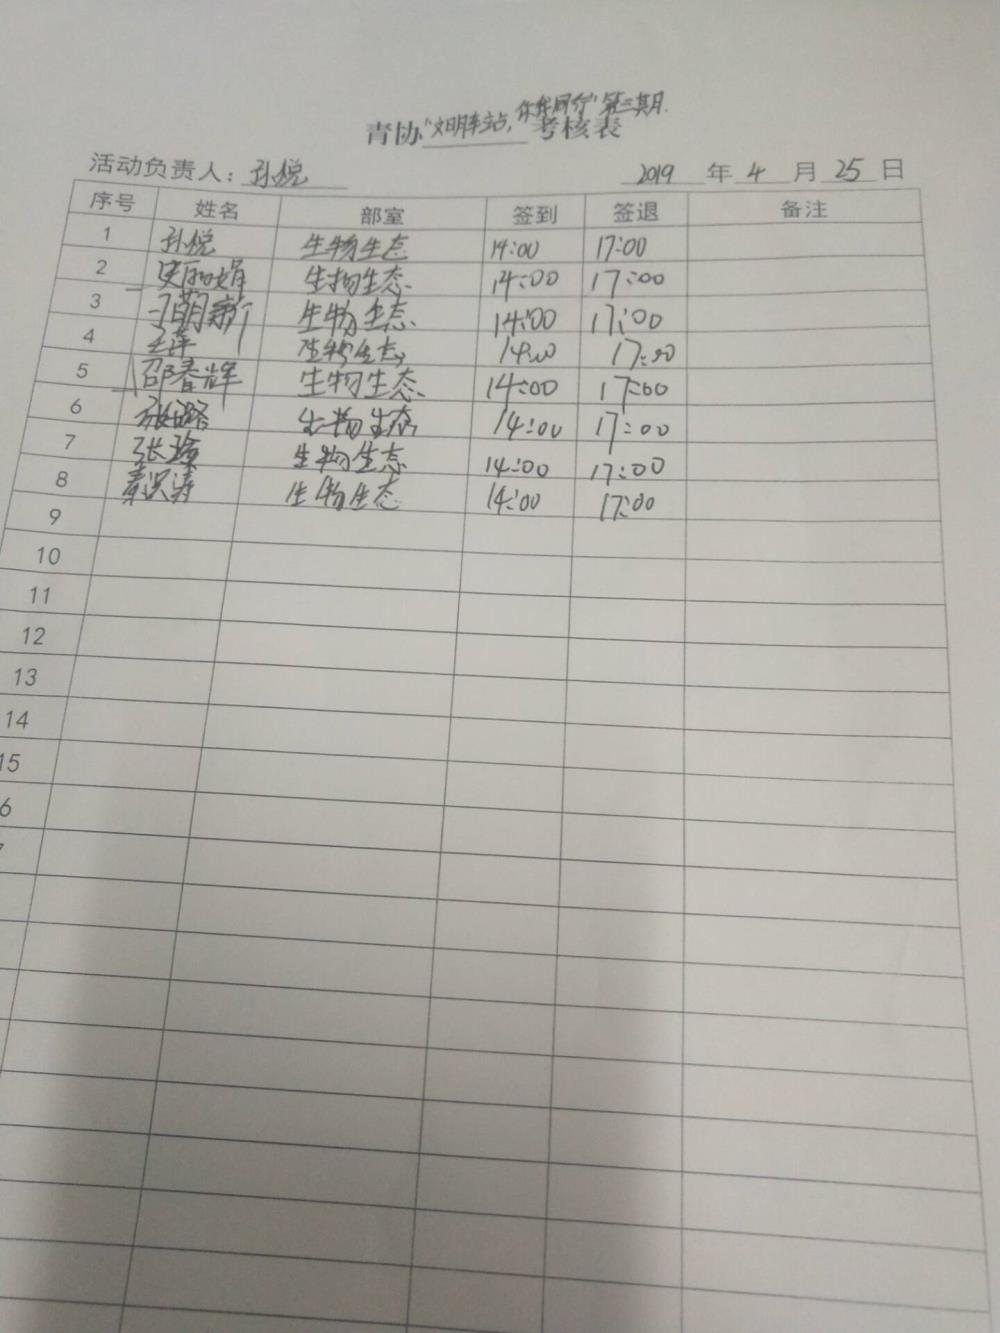 青协“文明车站，你我同行”第三期考核表
活动负责人：孙悦 2019 年 4 月 25 日
序号 姓名 部室 签到 签退 备注
1 孙悦 生物生态 14:00 17:00
2 史丽娟 生物生态 14:00 17:00
3 萌新 生物生态 14:00 17:00
4 王萍 生物生态 14:00 17:00
5 邵春辉 生物生态 14:00 17:00
6 张璐 生物生态 14:00 17:00
7 张 生物生态 14:00 17:00
8 秦洪涛 生物生态 14:00 17:00
9
10
11
12
13
14
15
6